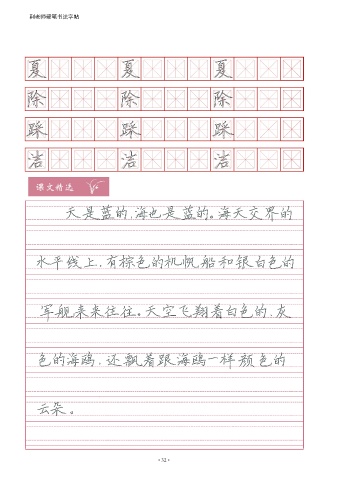 田老师硬笔书法字帖
夏 夏 夏
除 除 除
踩 踩 踩
洁 洁 洁
课文精选
天是蓝的,海也是蓝的。海天交界的
水平线上,有棕色的机帆船和银白色的
军舰来来往往。天空飞翔着白色的、灰
色的海鸥,还飘着跟海鸥一样颜色的
云朵。
·32·